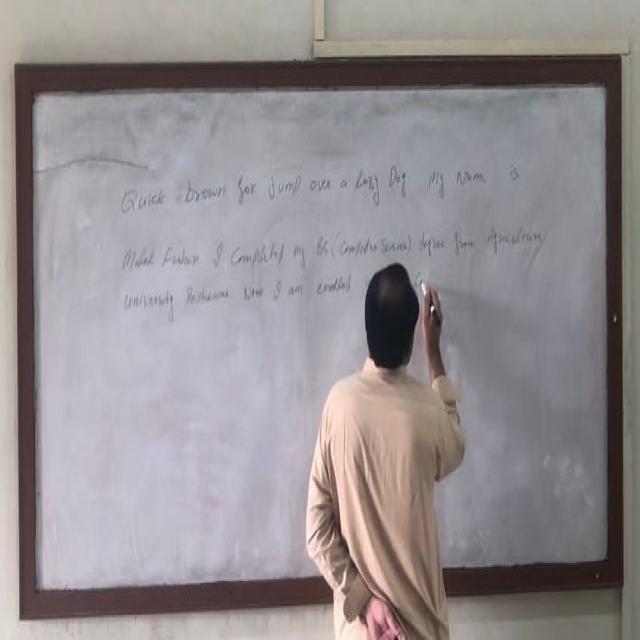 Quick brown for jump over a lazy Dog My Name is
I Completed my BS (Computer Science) degree from Agriculture
University Peshawar Now I am enrolled